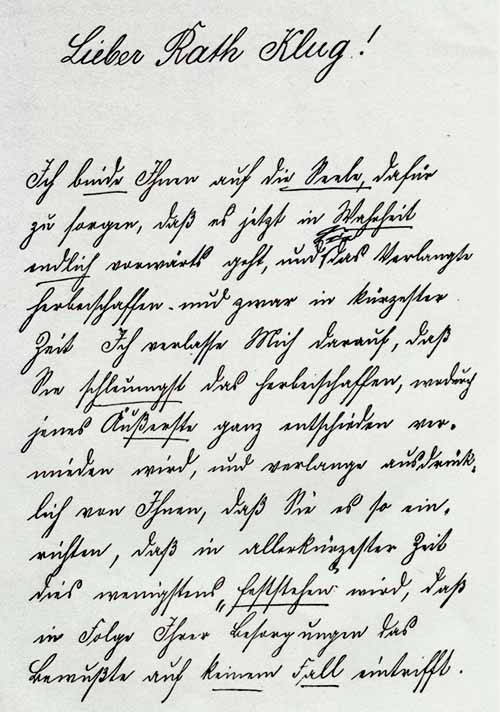 Lieber Rath Klug!
Ich binde Ihnen auf die Seele, dafür
zu sorgen, daß es jetzt in Wahrheit
endlich vorwärts geht, und Sie das Verlangte
herbeischaffen – und zwar in kürzester
Zeit Ich verlasse Mich darauf, daß
Sie schleunigst das herbeischaffen, wodurch
jenes Äußerste ganz entschieden ver-
mieden wird, und verlange ausdrück-
lich von Ihnen, daß Sie es so ein-
richten, daß in allerkürzester Zeit
dies wenigstens „feststehen“ wird, daß
in Folge Ihrer Besorgungen das
Bewußte auf keinem Fall eintrifft.